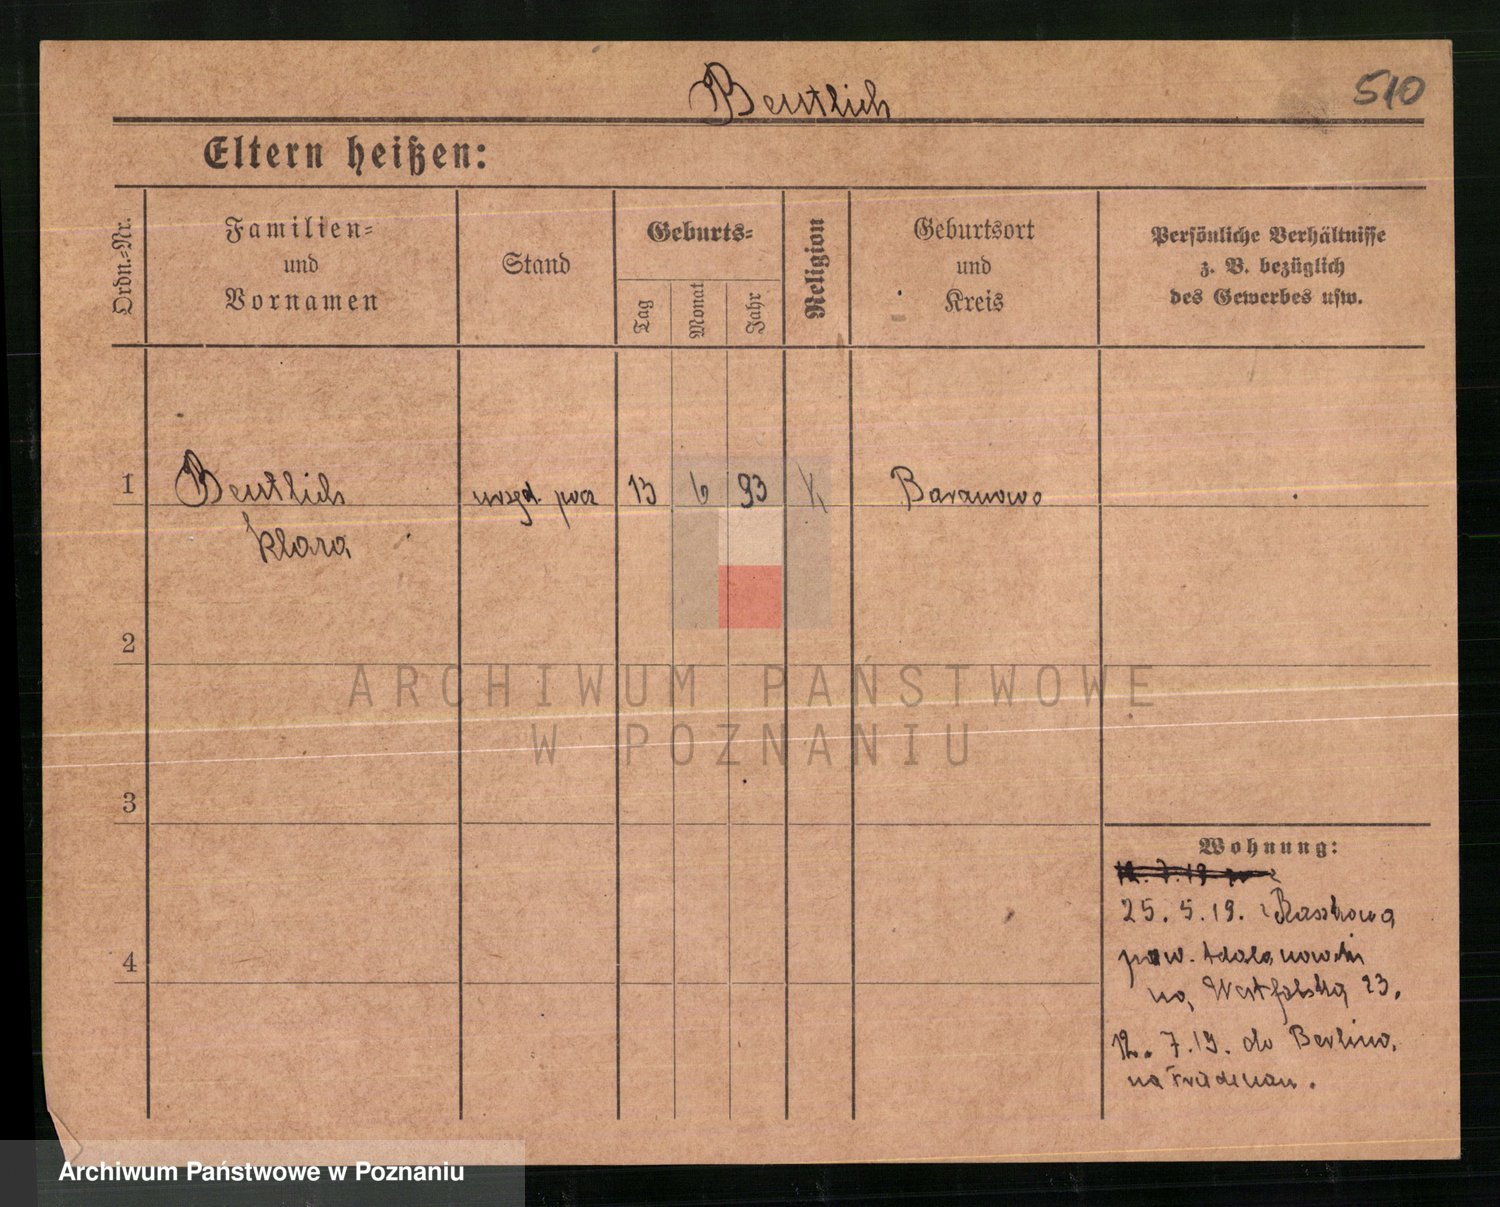 Bentlich
510
Eltern heißen:
Ordn.-Nr.
Familien-
und
Vornamen
Stand
Geburts-
Tag
Monat
Jahr
Religion
Geburtsort
und
Kreis
Persönliche Verhältnisse
z. B. bezüglich
des Gewerbes usw.
1
Bentlich
Klara
urzęd. pocz
13
6
93
K
Baranowo
2
3
4
Wohnung:
12. 7. 19
25. 5. 19. z Raszkowa
pow.
na Westfalską 23.
12. 7. 19. do Berlina,
na Friedenau.
ARCHIWUM PAŃSTWOWE
W POZNANIU
Archiwum Państwowe w Poznaniu